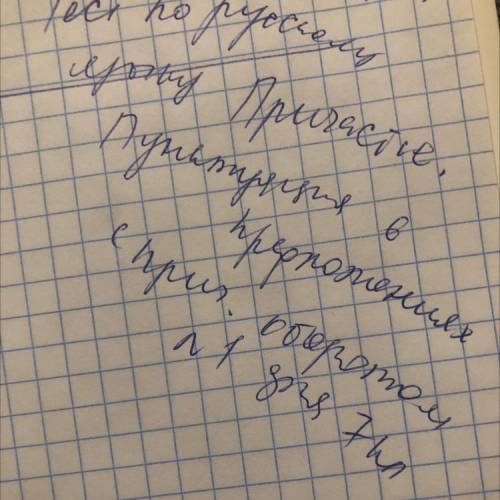 Тест по русскому
языку Причастие.
Пунктуация в
предложениях
с прич. оборотом
для 7 кл